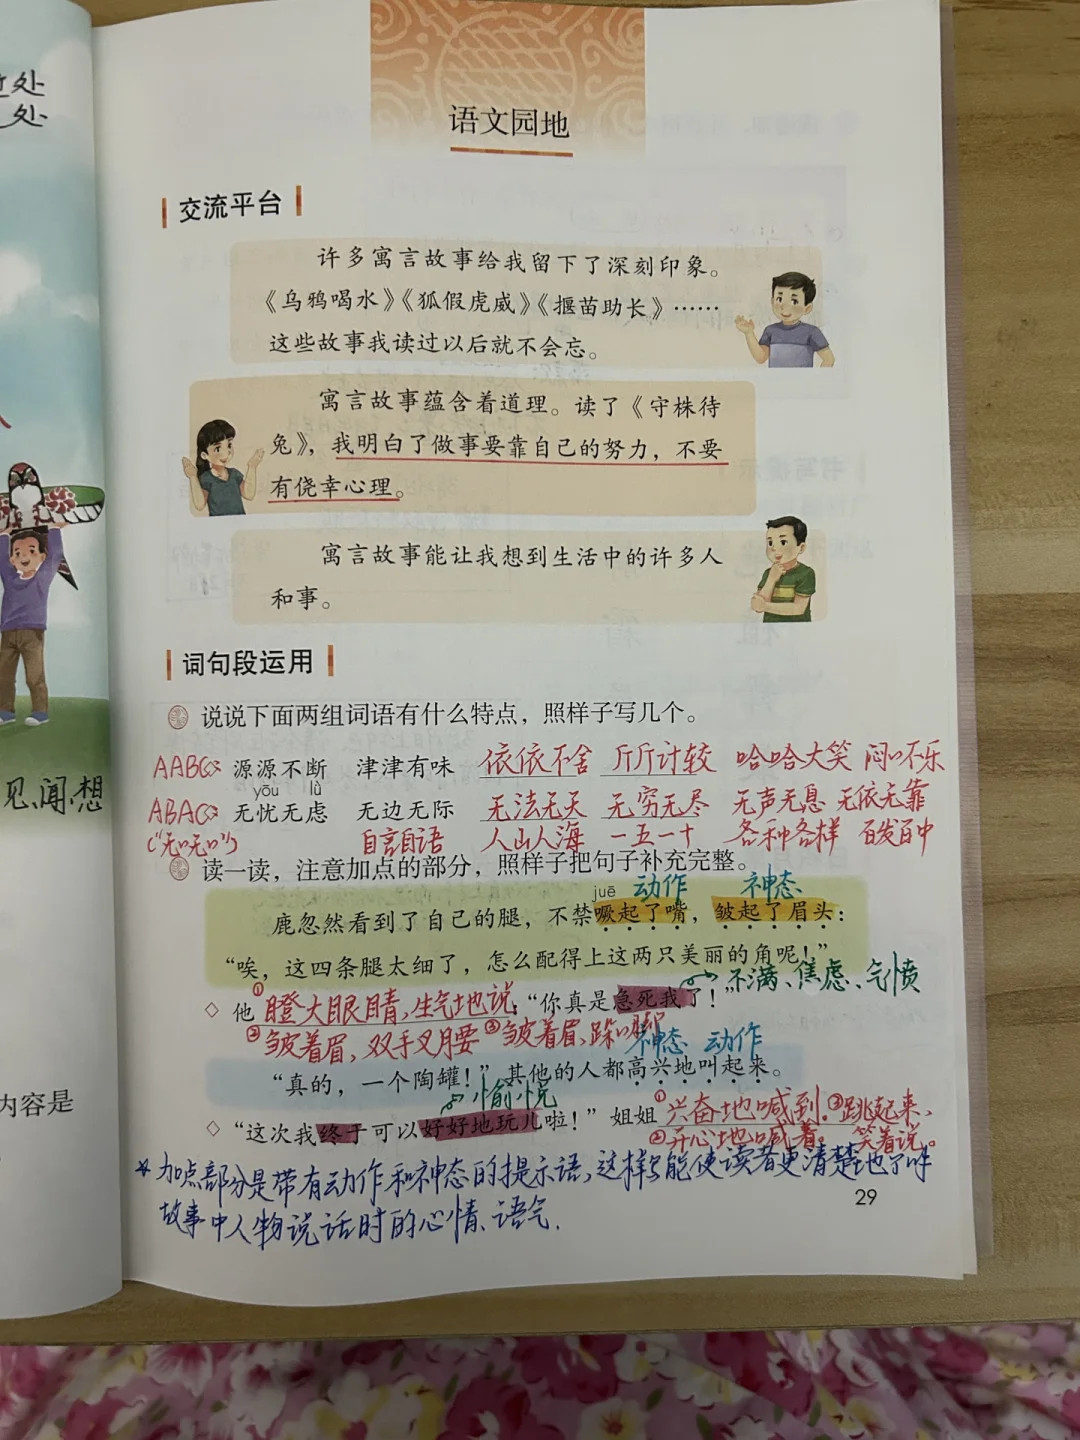 处
处
见、闻、想
内容是
语文园地
交流平台
许多寓言故事给我留下了深刻印象。
《乌鸦喝水》《狐假虎威》《揠苗助长》……
这些故事我读过以后就不会忘。
寓言故事蕴含着道理。读了《守株待
兔》，我明白了做事要靠自己的努力，不要
有侥幸心理。
寓言故事能让我想到生活中的许多人
和事。
词句段运用
说说下面两组词语有什么特点，照样子写几个。
AABC 源源不断 津津有味 依依不舍 斤斤计较 哈哈大笑 闷闷不乐
yōu lǜ
ABAC 无忧无虑 无边无际 无法无天 无穷无尽 无声无息 无依无靠
("无〃无〃") 自言自语 人山人海 一五一十 各种各样 百发百中
读一读，注意加点的部分，照样子把句子补充完整。
juē 动作 神态
鹿忽然看到了自己的腿，不禁噘起了嘴，皱起了眉头：
“唉，这四条腿太细了，怎么配得上这两只美丽的角呢！”
不满、焦虑、气愤
他①瞪大眼睛，生气地说：“你真是急死我了！”
②皱着眉，双手叉腰 ③皱着眉，跺跺脚
神态 动作
“真的，一个陶罐！”其他的人都高兴地叫起来。
愉悦
“这次我终于可以好好地玩儿啦！”姐姐①兴奋地喊到。③跳起来，
②开心地喊着。 笑着说。
*加点部分是带有动作和神态的提示语，这样写能使读者更清楚地了解
故事中人物说话时的心情、语气.
29